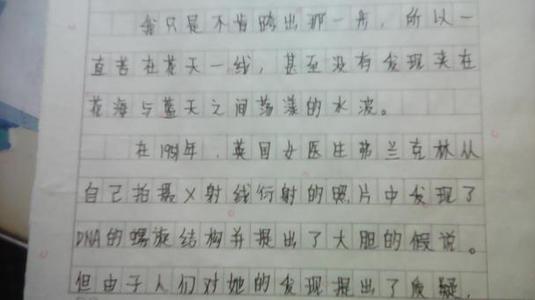 我只是不肯跨出那一步，所以一
直苦在花天一线，甚至没有发现夹在
花海与蓝天之间荡漾的水波。
在1951年，英国女医生弗兰克林从
自己拍摄X射线衍射的照片中发现了
DNA的螺旋结构并提出了大胆的假说。
但由于人们对她的发现提出了质疑，